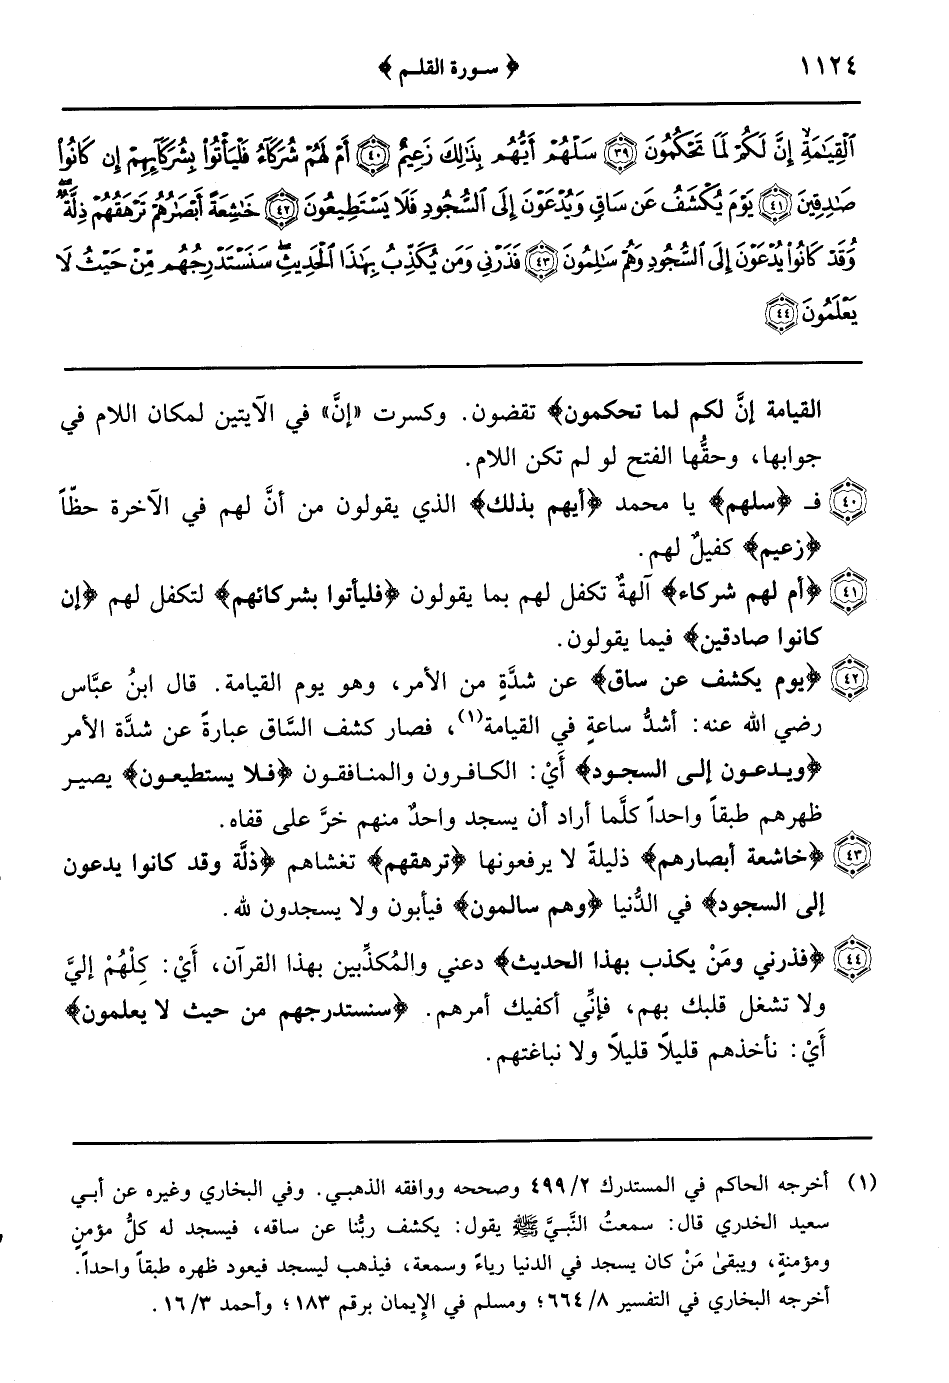 ١١٢٤ ﴿ سورة القلم ﴾
ٱلْقِيَٰمَةِ إِنَّ لَكُمْ لَمَا تَحْكُمُونَ ﴿٣٩﴾ سَلْهُمْ أَيُّهُم بِذَٰلِكَ زَعِيمٌ ﴿٤٠﴾ أَمْ لَهُمْ شُرَكَآءُ فَلْيَأْتُوا۟ بِشُرَكَآئِهِمْ إِن كَانُوا۟
صَٰدِقِينَ ﴿٤١﴾ يَوْمَ يُكْشَفُ عَن سَاقٍ وَيُدْعَوْنَ إِلَى ٱلسُّجُودِ فَلَا يَسْتَطِيعُونَ ﴿٤٢﴾ خَٰشِعَةً أَبْصَٰرُهُمْ تَرْهَقُهُمْ ذِلَّةٌ ۖ
وَقَدْ كَانُوا۟ يُدْعَوْنَ إِلَى ٱلسُّجُودِ وَهُمْ سَٰلِمُونَ ﴿٤٣﴾ فَذَرْنِى وَمَن يُكَذِّبُ بِهَٰذَا ٱلْحَدِيثِ ۖ سَنَسْتَدْرِجُهُم مِّنْ حَيْثُ لَا
يَعْلَمُونَ ﴿٤٤﴾
القيامة إنَّ لكم لما تحكمون﴾ تقضون. وكسرت «إنَّ» في الآيتين لمكان اللام في
جوابها، وحقُّها الفتح لو لم تكن اللام.
﴿٤٠﴾ فـ ﴿سلهم﴾ يا محمد ﴿أيهم بذلك﴾ الذي يقولون من أنَّ لهم في الآخرة حظّاً
﴿زعيم﴾ كفيلٌ لهم.
﴿٤١﴾ ﴿أم لهم شركاء﴾ آلهةٌ تكفل لهم بما يقولون ﴿فليأتوا بشركائهم﴾ لتكفل لهم ﴿إن
كانوا صادقين﴾ فيما يقولون.
﴿٤٢﴾ ﴿يوم يكشف عن ساق﴾ عن شدَّةٍ من الأمر، وهو يوم القيامة. قال ابنُ عبَّاس
رضي الله عنه: أشدُّ ساعةٍ في القيامة(١)، فصار كشف السَّاق عبارةً عن شدَّة الأمر
﴿ويدعون إلى السجود﴾ أَيْ: الكافرون والمنافقون ﴿فلا يستطيعون﴾ يصير
ظهرهم طبقاً واحداً كلَّما أراد أن يسجد واحدٌ منهم خرَّ على قفاه.
﴿٤٣﴾ ﴿خاشعة أبصارهم﴾ ذليلةً لا يرفعونها ﴿ترهقهم﴾ تغشاهم ﴿ذلَّة وقد كانوا يدعون
إلى السجود﴾ في الدُّنيا ﴿وهم سالمون﴾ فيأبون ولا يسجدون لله.
﴿٤٤﴾ ﴿فذرني ومَنْ يكذب بهذا الحديث﴾ دعني والمُكذِّبين بهذا القرآن، أَيْ: كِلْهُمْ إليَّ
ولا تشغل قلبك بهم، فإنِّي أكفيك أمرهم. ﴿سنستدرجهم من حيث لا يعلمون﴾
أَيْ: نأخذهم قليلاً قليلاً ولا نباغتهم.
(١) أخرجه الحاكم في المستدرك ٤٩٩/٢ وصححه ووافقه الذهبي. وفي البخاري وغيره عن أبي
سعيد الخدري قال: سمعتُ النَّبيَّ ﷺ يقول: يكشف ربُّنا عن ساقه، فيسجد له كلُّ مؤمنٍ
ومؤمنةٍ، ويبقىٰ مَنْ كان يسجد في الدنيا رياءً وسمعة، فيذهب ليسجد فيعود ظهره طبقاً واحداً.
أخرجه البخاري في التفسير ٦٦٤/٨؛ ومسلم في الإِيمان برقم ١٨٣؛ وأحمد ١٦/٣.